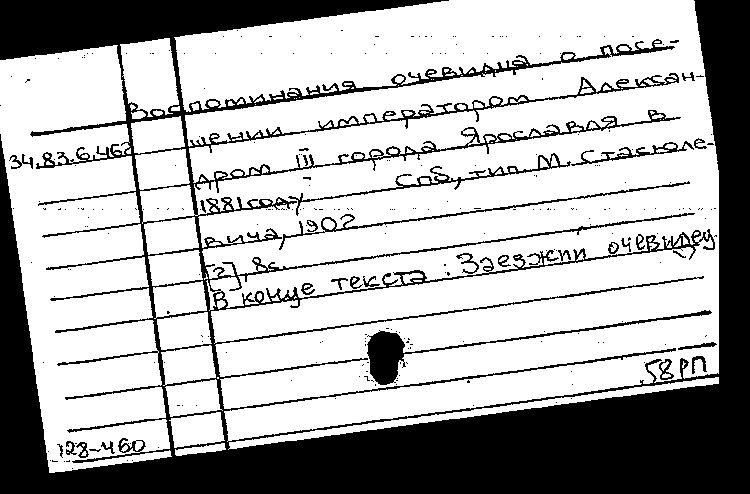 Воспоминания очевидца о посе-
34.83.6.462
щении императором Алексан-
дром III города Ярославля в
1881 году. Спб, тип. М. Стасюле-
вича, 1902
[2], 8с.
В конце текста: Заезжий очевидец
58РП
128-460